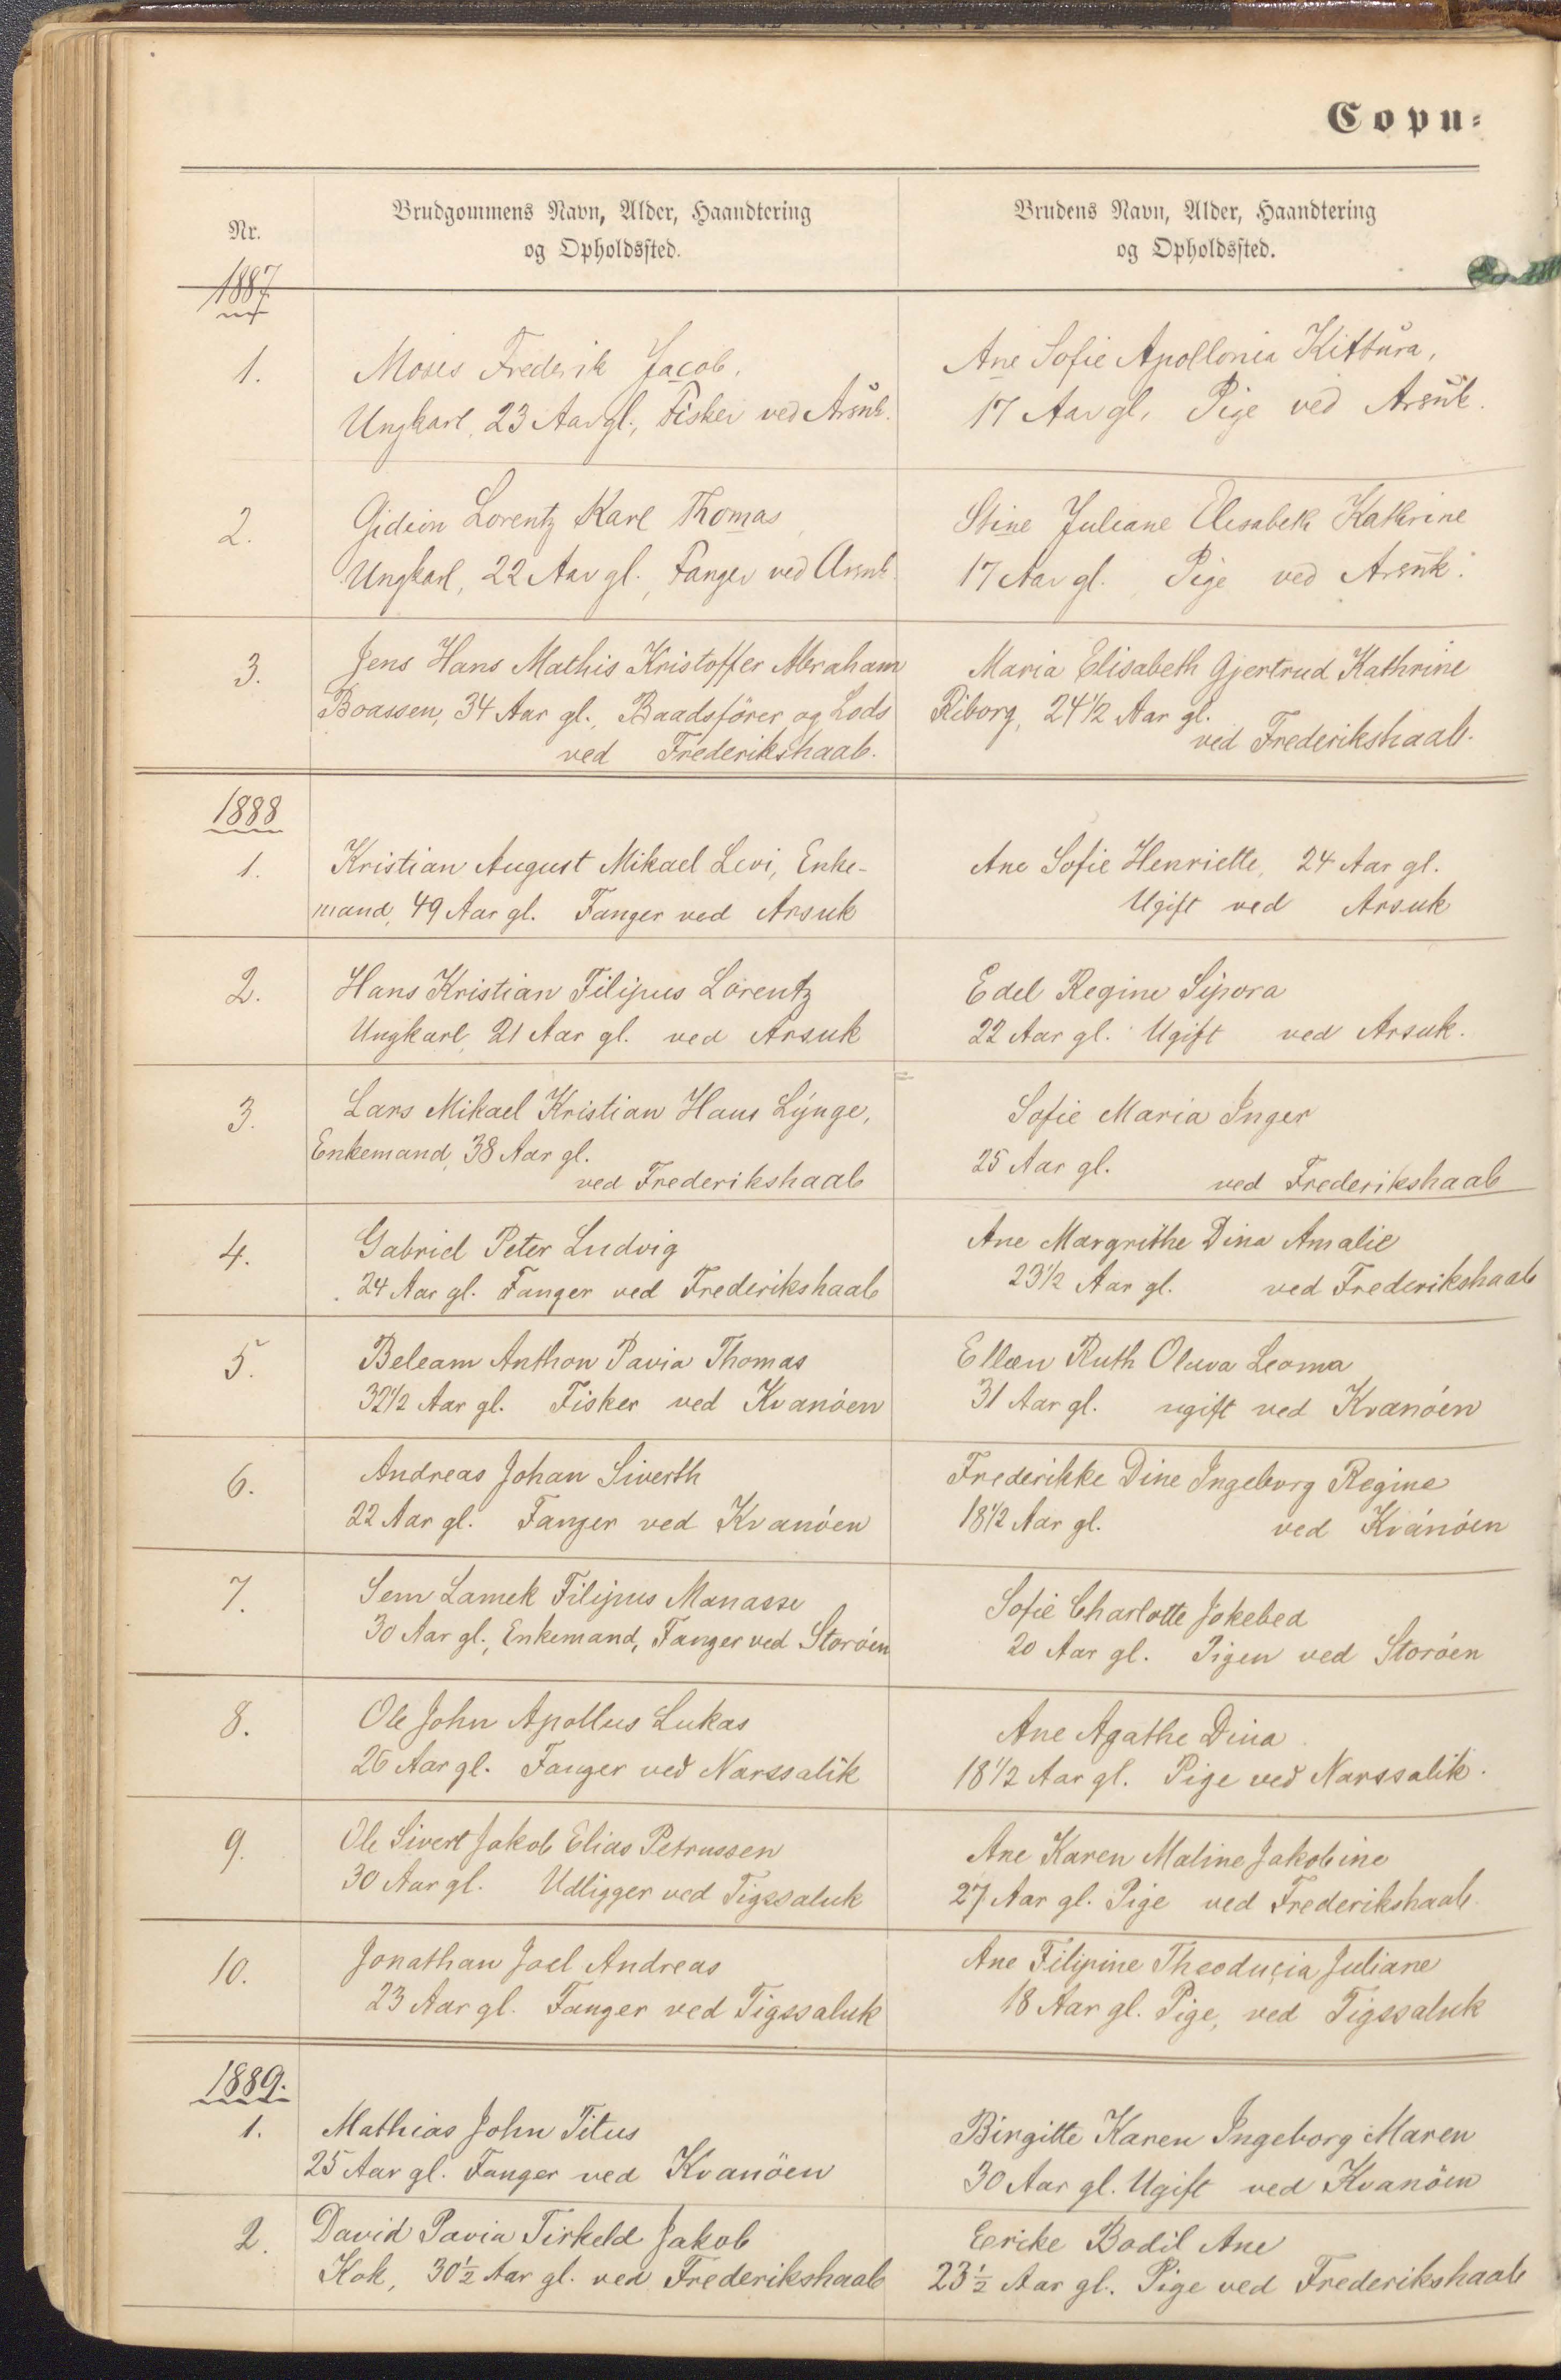 Copu-
Nr.
Brudgommens Navn, Alder, Haandtering
og Opholdssted.
Brudens Navn, Alder, Haandtering
og Opholdssted.
1887
1.
Moses Frederik Jacob,
Ungkarl, 23 Aar gl., Fisker ved Arsuk.
Ane Sofie Apollonia Kittura,
17 Aar gl, Pige ved Arsuk.
2.
Gideon Lorentz Karl Thomas,
Ungkarl, 22 Aar gl., Fanger ved Arsuk
Stine Juliane Elisabeth Kathrine
17 Aar gl. Pige ved Arsuk.
3.
Jens Hans Mathis Kristoffer Abraham
Boassen, 34 Aar gl., Baadsförer og Lods
ved Frederikshaab.
Maria Elisabeth Gjertrud Kathrine
Riborg, 24 1/2 Aar gl.
ved Frederikshaab.
1888
1.
Kristian August Mikael Levi, Enke-
mand, 49 Aar gl. Fanger ved Arsuk
Ane Sofie Henriette, 24 Aar gl.
Ugift ved Arsuk
2.
Hans Kristian Filipus Lorentz
Ungkarl, 21 Aar gl. ved Arsuk
Edel Regine Sipora
22 Aar gl. Ugift ved Arsuk.
3.
Lars Mikael Kristian Hans Lynge,
Enkemand, 38 Aar gl.
ved Frederikshaab
Sofie Maria Inger
25 Aar gl.
ved Frederikshaab
4.
Gabriel Peter Ludvig
24 Aar gl. Fanger ved Frederikshaab
Ane Margrithe Dina Amalie
23 1/2 Aar gl. ved Frederikshaab
5.
Beleam Anthon Pavia Thomas
32 1/2 Aar gl. Fisker ved Kvanöen
Ellen Ruth Oluva Leoma
31 Aar gl. ugift ved Kvanöen
6.
Andreas Johan Siverth
22 Aar gl. Fanger ved Kvanöen
Frederikke Dine Ingeborg Regine
18 1/2 Aar gl. ved Kvanöen
7.
Sem Lamek Filipus Manasse
30 Aar gl., Enkemand, Fanger ved Storöen
Sofie Charlotte Jokebed
20 Aar gl. Pigen ved Storöen
8.
Ole John Apollus Lukas
26 Aar gl. Fanger ved Narssalik
Ane Agathe Dina
18 1/2 Aar gl. Pige ved Narssalik.
9.
Ole Sivert Jakob Elias Petrussen
30 Aar gl. Udligger ved Tigssaluk
Ane Karen Maline Jakobine
27 Aar gl. Pige ved Frederikshaab.
10.
Jonathan Joel Andreas
23 Aar gl. Fanger ved Tigssaluk
Ane Filipine Theoducia Juliane
18 Aar gl. Pige, ved Tigssaluk
1889.
1.
Mathias John Titus
25 Aar gl. Fanger ved Kvanöen
Birgitte Karen Ingeborg Maren
30 Aar gl. Ugift ved Kvanöen
2.
David Pavia Tirkeld Jakob
Kok, 30 1/2 Aar gl. ved Frederikshaab
Eerike Bodil Ane
23 1/2 Aar gl. Pige ved Frederikshaab